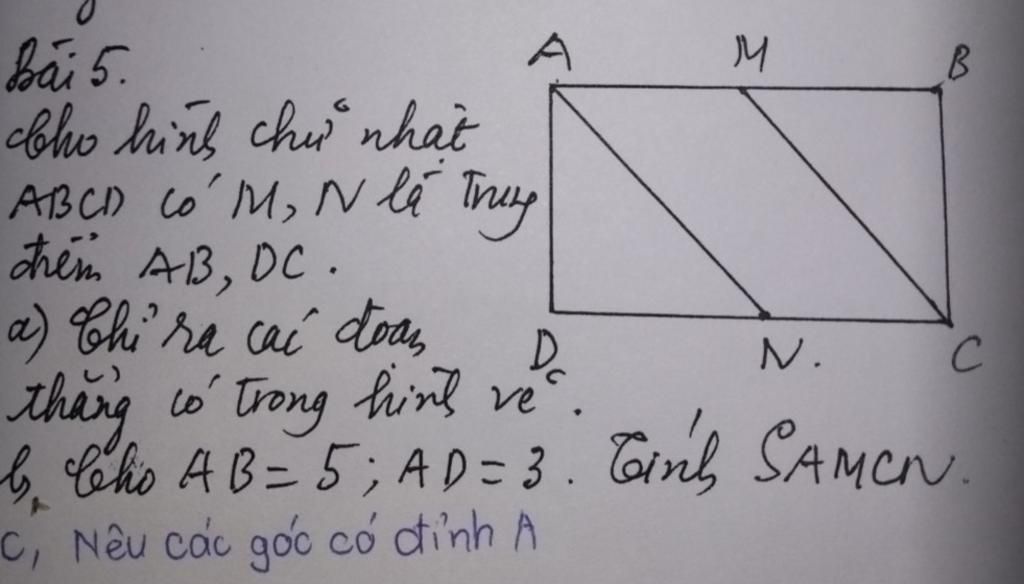 Bài 5.
Cho hình chữ nhật
ABCD có M, N là Trung
điểm AB, DC.
a) Chỉ ra các đoạn
thẳng có trong hình vẽ.
b, Cho AB = 5; AD = 3. Tính SAMCN.
c, Nêu các góc có đỉnh A
A M B
D N. C